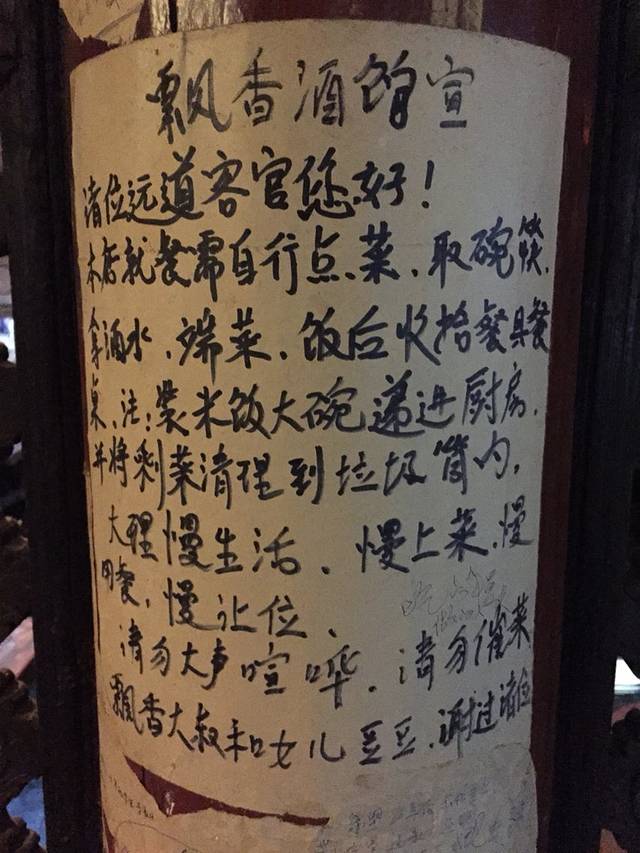 飘香酒馆宣
诸位远道客官您好！
本店就餐需自行点菜、取碗筷、
拿酒水、端菜、饭后收拾餐具餐
桌，注：装米饭大碗递进厨房，
并将剩菜清理到垃圾筒内，
大理慢生活、慢上菜、慢
用餐，慢让位、
请勿大声喧哗、请勿催菜
飘香大叔和女儿豆豆、谢过诸位